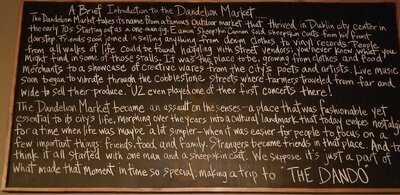 A Brief Introduction to the Dandelion Market
The Dandelion Market takes its name from a famous outdoor market that thrived in Dublin city center in
the early 70s. Starting out as a one-man selling sheepskin coats from his front
doorstep. Vendors soon joined in selling anything from denim clothes to vinyl records. People
from all walks of life could be found haggling with street vendors, you never knew what you
might find in some of those stalls. It was the place to be, growing from clothes and food
merchants to a showcase of creative wares from the city's poets and artists. Live music
soon began to vibrate through the cobblestone streets where farmers traveled from far and
wide to sell their produce. U2 even played one of their first concerts there!
The Dandelion Market became an assault on the senses - a place that was fashionable yet
essential to its city's life, morphing over the years into a cultural landmark that today evokes nostalgia
for a time when life was maybe a bit simpler - when it was easier for people to focus on a
few important things: friends, food, and family. Strangers became friends in that place. And to
think it all started with one man and a sheepskin coat. We suppose it's just a part of
what made that moment in time so special, making a trip to "THE DANDO"